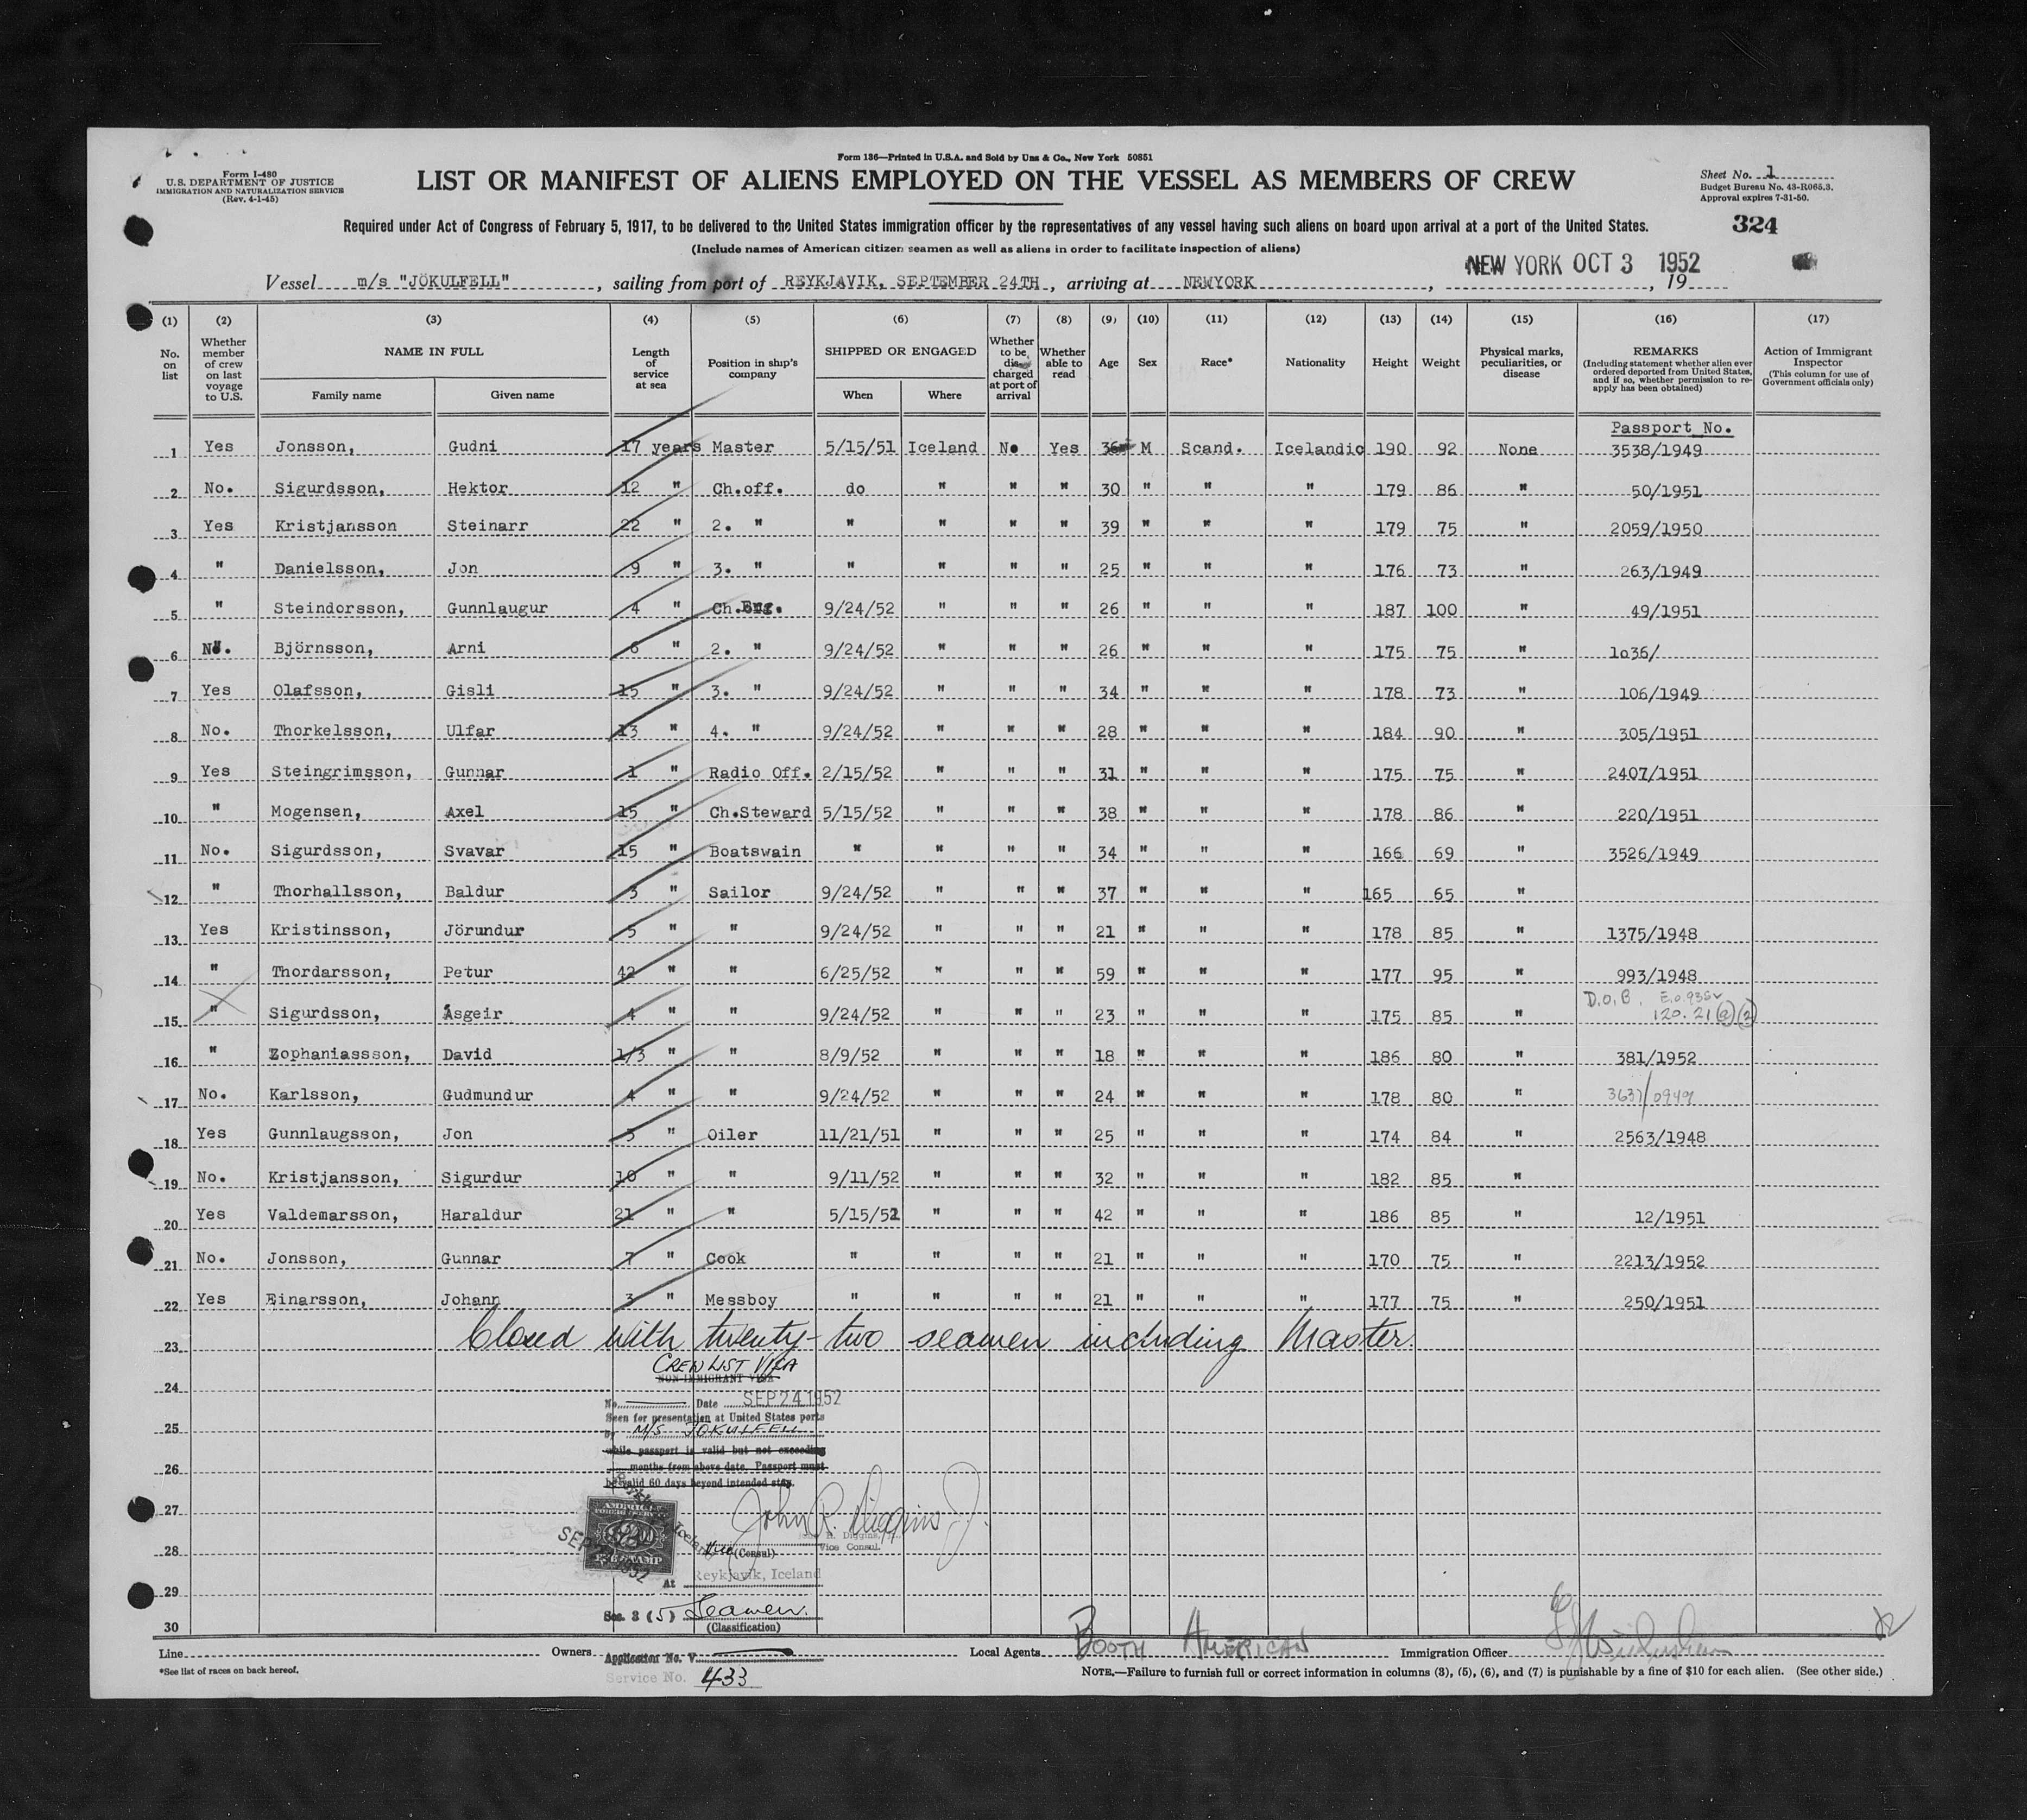 Form 136—Printed in U.S.A. and Sold by Unz & Co., New York 50851
Form I-480
U.S. DEPARTMENT OF JUSTICE
IMMIGRATION AND NATURALIZATION SERVICE
(Rev. 4-1-45)
LIST OR MANIFEST OF ALIENS EMPLOYED ON THE VESSEL AS MEMBERS OF CREW
Sheet No. 1
Budget Bureau No. 43-R065.3.
Approval expires 7-31-50.
Required under Act of Congress of February 5, 1917, to be delivered to the United States immigration officer by the representatives of any vessel having such aliens on board upon arrival at a port of the United States.
324
(Include names of American citizen seamen as well as aliens in order to facilitate inspection of aliens)
NEW YORK OCT 3 1952
Vessel m/s "JÖKULFELL", sailing from port of REYKJAVIK, SEPTEMBER 24TH, arriving at NEWYORK, , 19
(1) (2) (3) (4) (5) (6) (7) (8) (9) (10) (11) (12) (13) (14) (15) (16) (17)
No. on list
Whether member of crew on last voyage to U.S.
NAME IN FULL
Family name Given name
Length of service at sea
Position in ship's company
SHIPPED OR ENGAGED
When Where
Whether to be discharged at port of arrival
Whether able to read
Age Sex Race* Nationality Height Weight
Physical marks, peculiarities, or disease
REMARKS
(Including statement whether alien ever ordered deported from United States, and if so, whether permission to reapply has been obtained)
Action of Immigrant Inspector
(This column for use of Government officials only)
Passport No.
1 Yes Jonsson, Gudni 17 years Master 5/15/51 Iceland No Yes 36 M Scand. Icelandic 190 92 None 3538/1949
2 No. Sigurdsson, Hektor 12 " Ch.off. do " " " 30 " " " 179 86 " 50/1951
3 Yes Kristjansson Steinarr 22 " 2. " " " " " 39 " " " 179 75 " 2059/1950
4 " Danielsson, Jon 9 " 3. " " " " " 25 " " " 176 73 " 263/1949
5 " Steindorsson, Gunnlaugur 4 " Ch.Eng. 9/24/52 " " " 26 " " " 187 100 " 49/1951
6 No. Björnsson, Arni 6 " 2. " 9/24/52 " " " 26 " " " 175 75 " 1036/
7 Yes Olafsson, Gisli 15 " 3. " 9/24/52 " " " 34 " " " 178 73 " 106/1949
8 No. Thorkelsson, Ulfar 13 " 4. " 9/24/52 " " " 28 " " " 184 90 " 305/1951
9 Yes Steingrimsson, Gunnar 1 " Radio Off. 2/15/52 " " " 31 " " " 175 75 " 2407/1951
10 " Mogensen, Axel 15 " Ch.Steward 5/15/52 " " " 38 " " " 178 86 " 220/1951
11 No. Sigurdsson, Svavar 15 " Boatswain " " " " 34 " " " 166 69 " 3526/1949
12 " Thorhallsson, Baldur 3 " Sailor 9/24/52 " " " 37 " " " 165 65 "
13 Yes Kristinsson, Jörundur 5 " " 9/24/52 " " " 21 " " " 178 85 " 1375/1948
14 " Thordarsson, Petur 42 " " 6/25/52 " " " 59 " " " 177 95 " 993/1948
15 " Sigurdsson, Ásgeir 4 " " 9/24/52 " " " 23 " " " 175 85 " D.O.B. 120.21 (a) (2)
16 " Zophaniassson, David 1/3 " " 8/9/52 " " " 18 " " " 186 80 " 381/1952
17 No. Karlsson, Gudmundur 4 " " 9/24/52 " " " 24 " " " 178 80 "
18 Yes Gunnlaugsson, Jon 3 " Oiler 11/21/51 " " " 25 " " " 174 84 " 2563/1948
19 No. Kristjansson, Sigurdur 10 " " 9/11/52 " " " 32 " " " 182 85 "
20 Yes Valdemarsson, Haraldur 21 " " 5/15/51 " " " 42 " " " 186 85 " 12/1951
21 No. Jonsson, Gunnar 7 " Cook " " " " 21 " " " 170 75 " 2213/1952
22 Yes Einarsson, Johann 3 " Messboy " " " " 21 " " " 177 75 " 250/1951
23 Closed with twenty-two seamen including Master.
CREW LIST VISA
NON-IMMIGRANT VISA
24
No. Date SEP 24 1952
Seen for presentation at United States ports
25
by M/S JOKULFELL
while passport is valid but not exceeding
26
months from above date. Passport must
be valid 60 days beyond intended stay.
27
John R. Diggins Jr.
Vice Consul
28
Vice (Consul)
At Reykjavik, Iceland
29
Sec. 3 (5) Seamen.
(Classification)
30
Line Owners Local Agents BOOTH AMERICAN Immigration Officer
Application No. V
*See list of races on back hereof.
NOTE.—Failure to furnish full or correct information in columns (3), (5), (6), and (7) is punishable by a fine of $10 for each alien. (See other side.)
Service No. 433